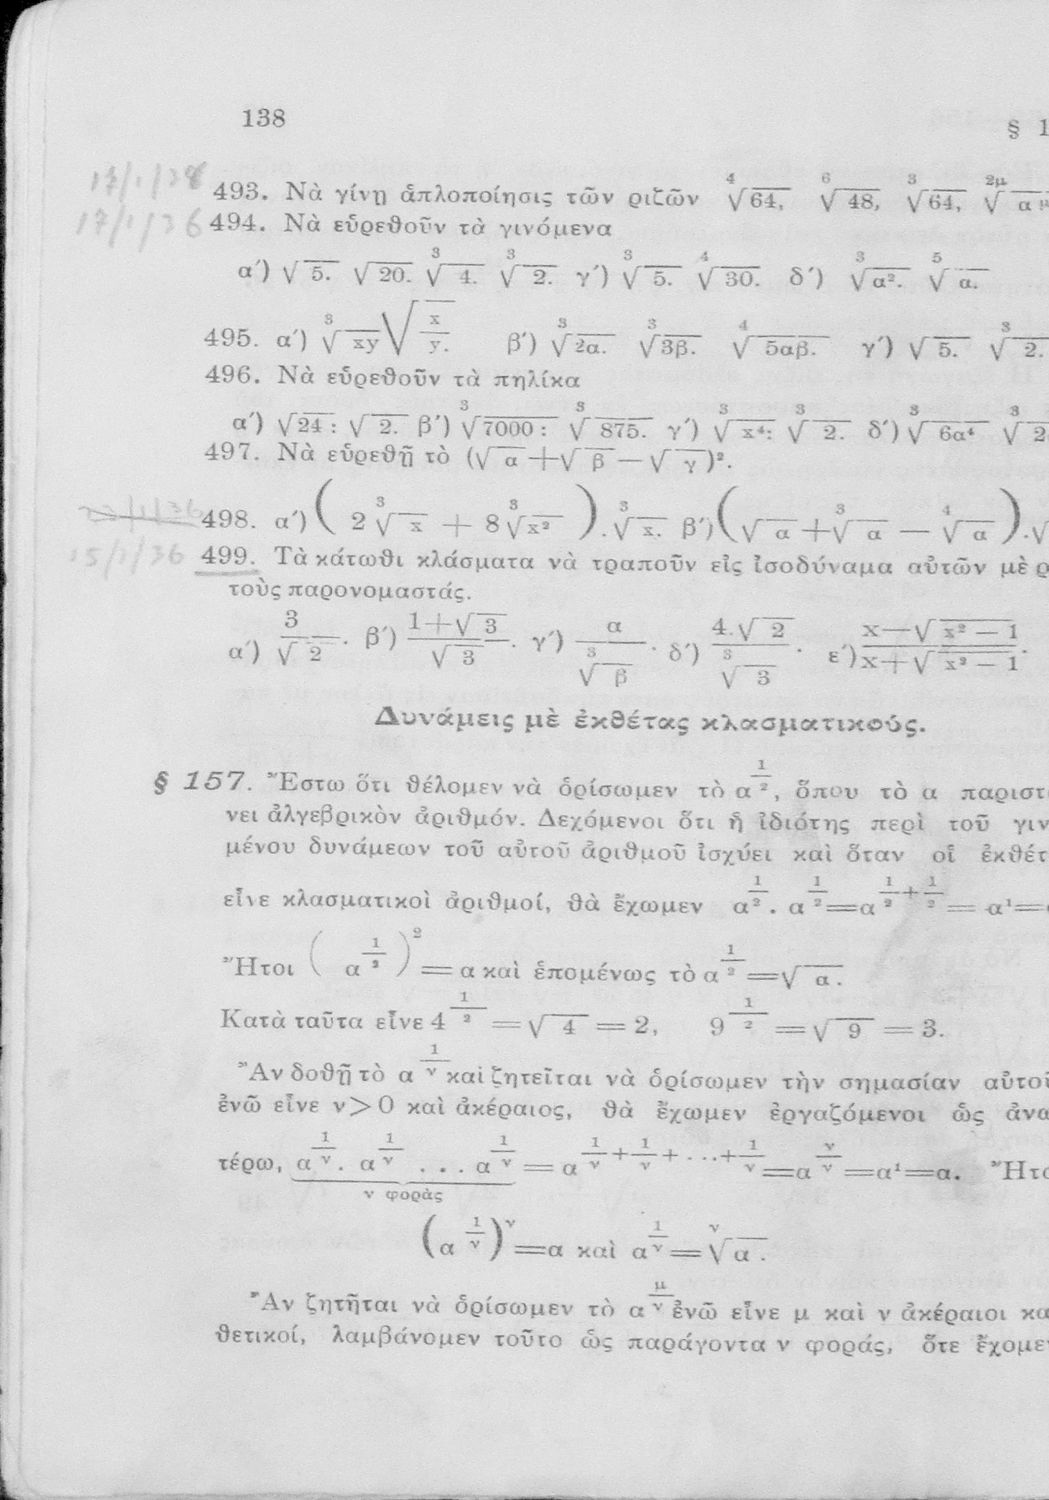 138
§ 1
17/1/36 493. Νὰ γίνῃ ἁπλοποίησις τῶν ριζῶν ∜64, ⁶√48, ∛64, ²ᵘ√α
17/1/36 494. Νὰ εὑρεθοῦν τὰ γινόμενα
α΄) √5. √20. ∛4. ∛2. γ΄) ∛5. ∜30. δ΄) ∛α². ⁵√α.
495. α΄) ∛xy √(x/y). β΄) ∛2α. ∛3β. ∜5αβ. γ΄) √5. ∛2.
496. Νὰ εὑρεθοῦν τὰ πηλίκα
α΄) √24 : √2. β΄) ∛7000 : ∛875. γ΄) ∛x⁴: ∛2. δ΄) ∛6α⁴ ∛2
497. Νὰ εὑρεθῇ τὸ (√α+√β—√γ)².
498. α΄) (2∛x + 8∛x²).∛x. β΄) (√α+∛α—∜α).√
15/1/36 499. Τὰ κάτωθι κλάσματα νὰ τραποῦν εἰς ἰσοδύναμα αὐτῶν μὲ ρ
τοὺς παρονομαστάς.
α΄) 3/√2. β΄) (1+√3)/√3. γ΄) α/∛β. δ΄) (4.√2)/∛3. ε΄) (x—√(x²—1))/(x+√(x²—1)).
Δυνάμεις μὲ ἐκθέτας κλασματικούς.
§ 157. Ἔστω ὅτι θέλομεν νὰ ὁρίσωμεν τὸ α^(1/2), ὅπου τὸ α παριστ
νει ἀλγεβρικὸν ἀριθμόν. Δεχόμενοι ὅτι ἡ ἰδιότης περὶ τοῦ γιν
μένου δυνάμεων τοῦ αὐτοῦ ἀριθμοῦ ἰσχύει καὶ ὅταν οἱ ἐκθέτ
εἶνε κλασματικοὶ ἀριθμοί, θὰ ἔχωμεν α^(1/2) . α^(1/2)=α^(1/2+1/2)= α¹=
Ἤτοι (α^(1/2))²=α καὶ ἑπομένως τὸ α^(1/2)=√α.
Κατὰ ταῦτα εἶνε 4^(1/2)=√4=2, 9^(1/2)=√9=3.
Ἂν δοθῇ τὸ α^(1/ν) καὶ ζητεῖται νὰ ὁρίσωμεν τὴν σημασίαν αὐτοῦ
ἐνῶ εἶνε ν>0 καὶ ἀκέραιος, θὰ ἔχωμεν ἐργαζόμενοι ὡς ἀνα
τέρω, α^(1/ν) . α^(1/ν) . . . α^(1/ν)=α^(1/ν+1/ν+...+1/ν)=α^(ν/ν)=α¹=α. Ἤτο
ν φορὰς
(α^(1/ν))^ν=α καὶ α^(1/ν)=ᵛ√α.
Ἂν ζητῆται νὰ ὁρίσωμεν τὸ α^(μ/ν) ἐνῶ εἶνε μ καὶ ν ἀκέραιοι κα
θετικοί, λαμβάνομεν τοῦτο ὡς παράγοντα ν φοράς, ὅτε ἔχομεν